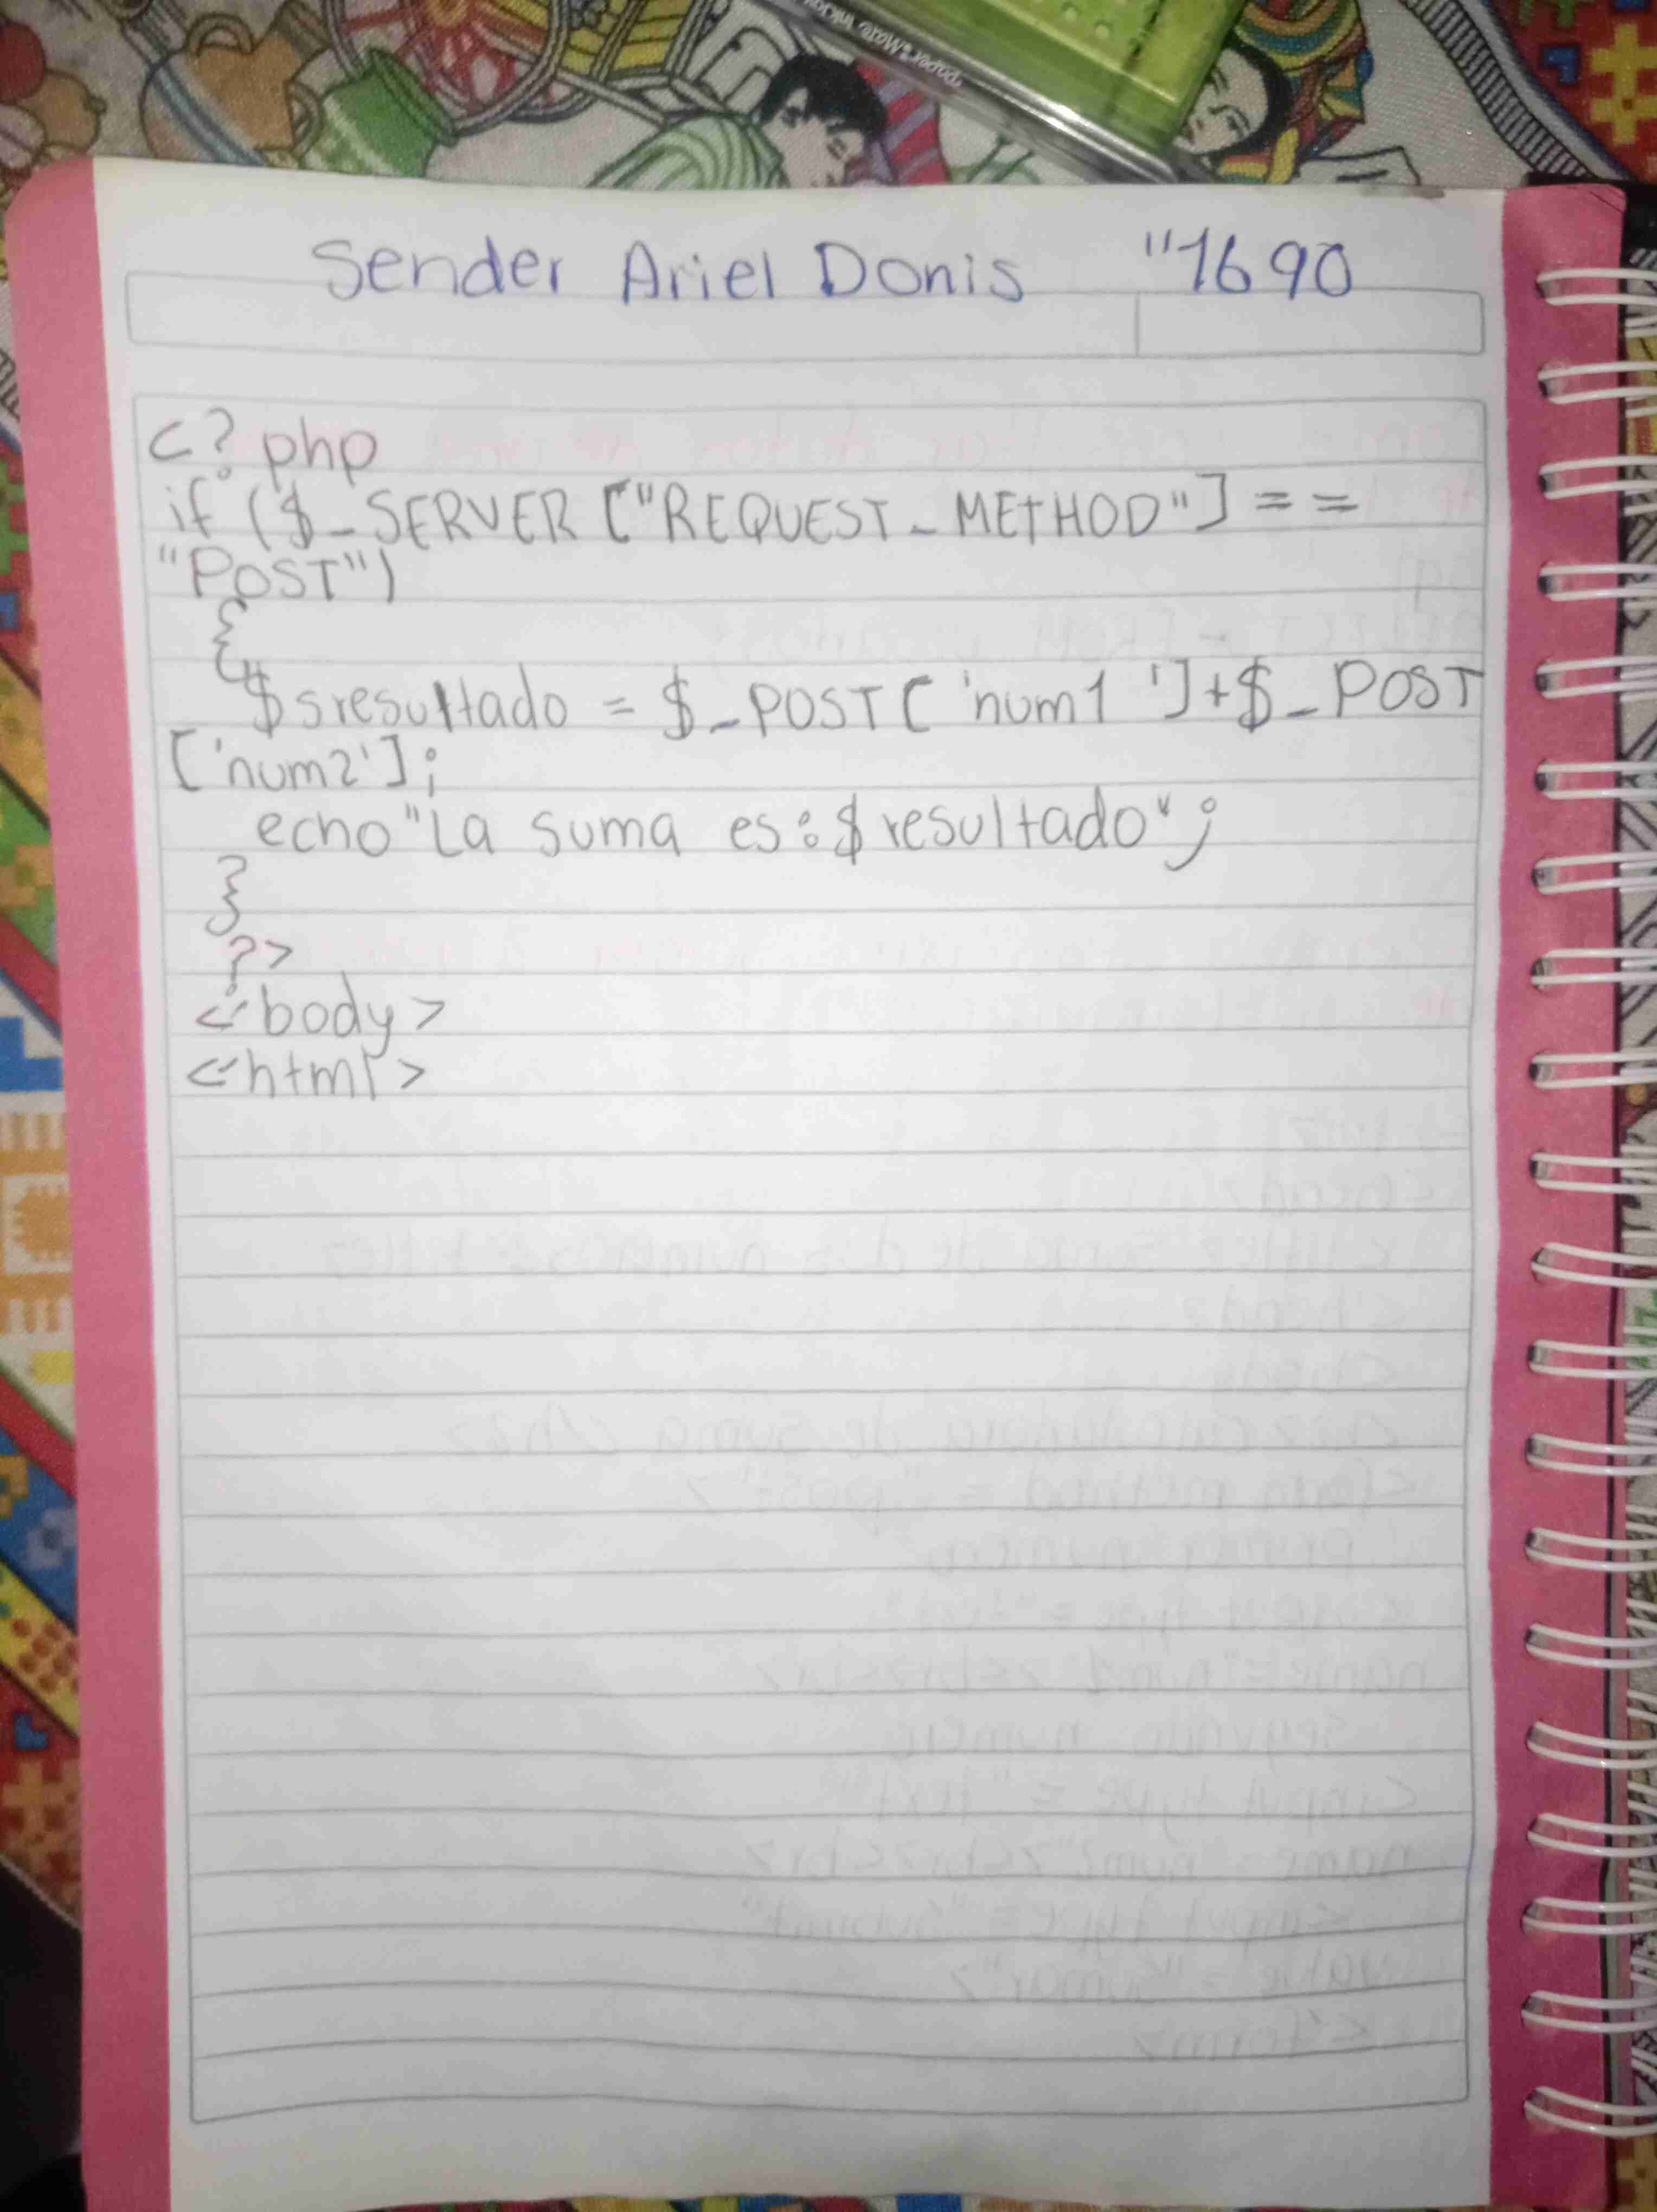 Paper Mate Inkjoy
Sender Ariel Donis "1690
<?php
if ($_SERVER ["REQUEST_METHOD"] ==
"POST")
{
$sresultado = $_POST [ 'num1 ']+$_POST
['num2'];
echo "La suma es:$resultado";
}
?>
</body>
</html>